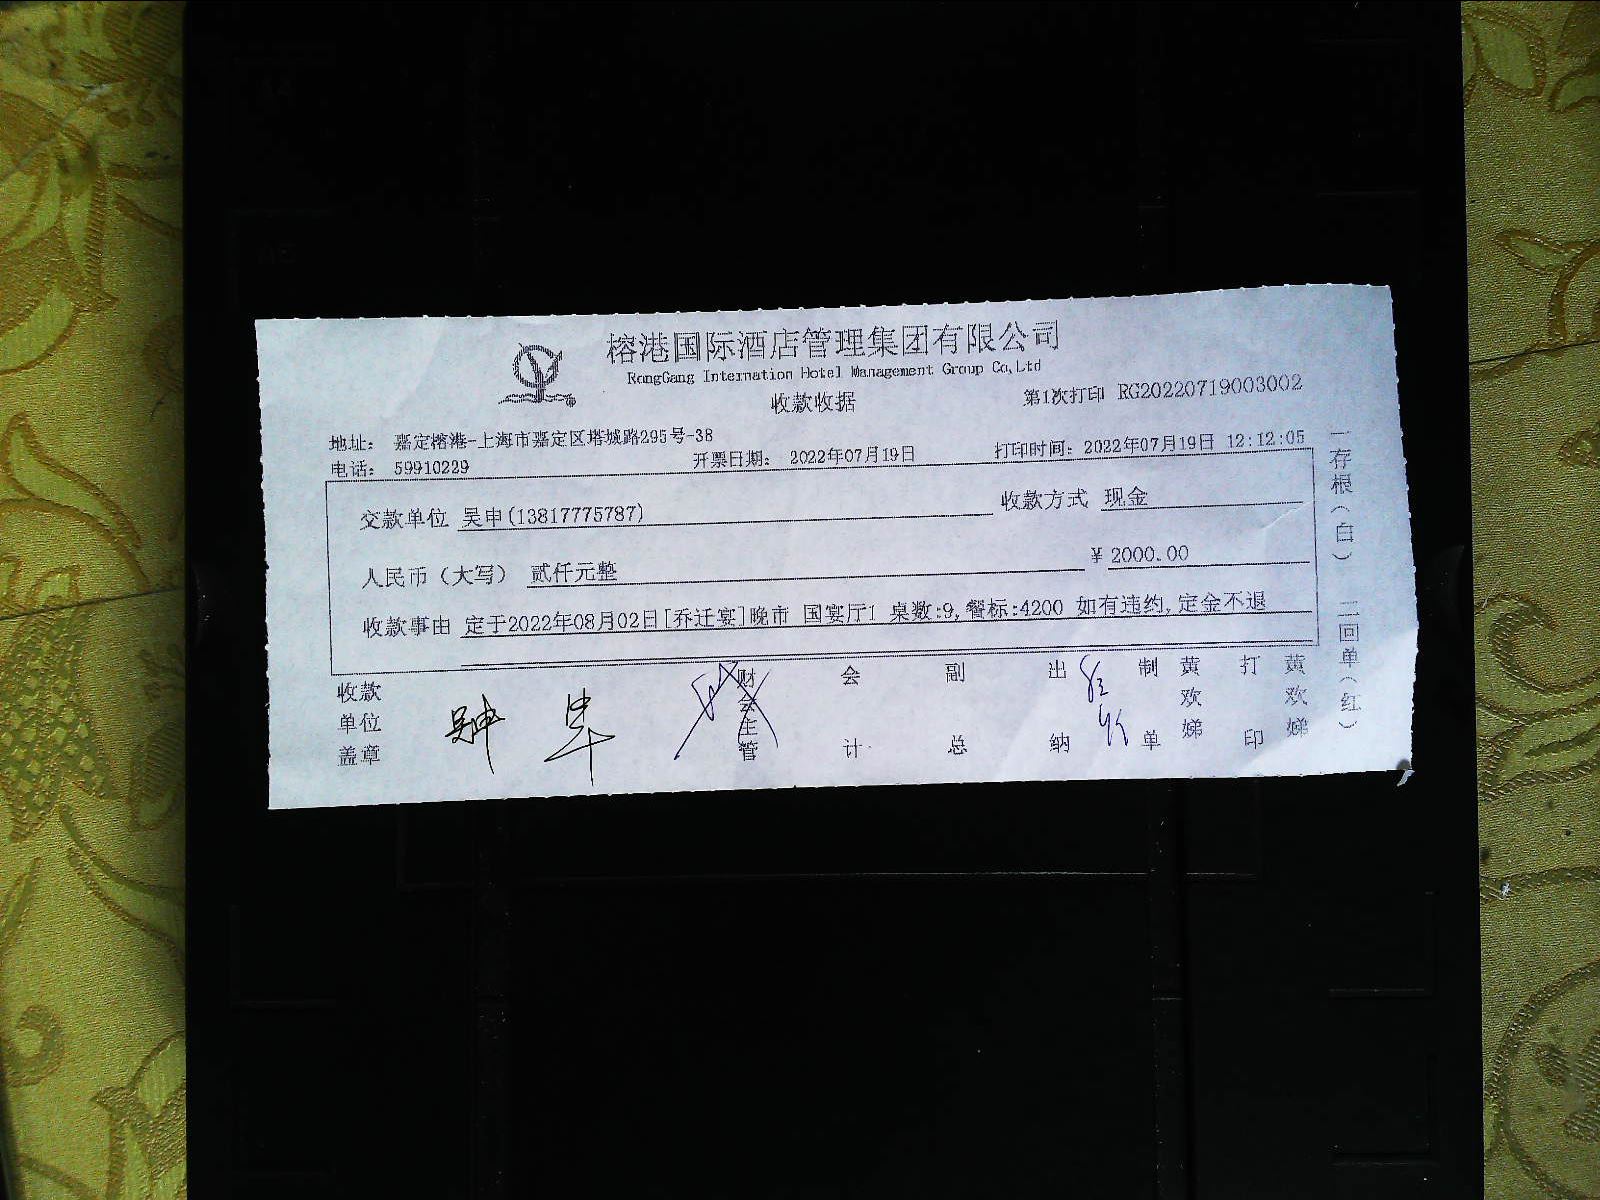 榕港国际酒店管理集团有限公司
RongGang Internation Hotel Management Group Co,Ltd
收款收据
第1次打印 RG20220719003002
地址: 嘉定榕港-上海市嘉定区塔城路295号-38
电话: 59910229 开票日期: 2022年07月19日 打印时间: 2022年07月19日 12:12:05
交款单位 吴申(13817775787) 收款方式 现金
人民币（大写） 贰仟元整 ¥ 2000.00
收款事由 定于2022年08月02日[乔迁宴]晚市 国宴厅1 桌数:9,餐标:4200 如有违约,定金不退
收款单位盖章
吴申
财会主管
会计
副总
出纳
制单
黄欢娣
打印
黄欢娣
一存根(白)
二回单(红)